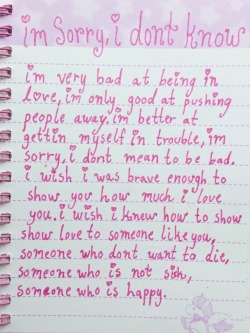 im Sorry, i dont Know
im very bad at being in
love, im only good at pushing
people away. im better at
gettin myself in trouble, im
sorry. i dont mean to be bad.
i wish i was brave enough to
show you how much i love
you. i wish i knew how to show
show love to someone like you,
someone who dont want to die,
someone who is not sick,
someone who is happy.